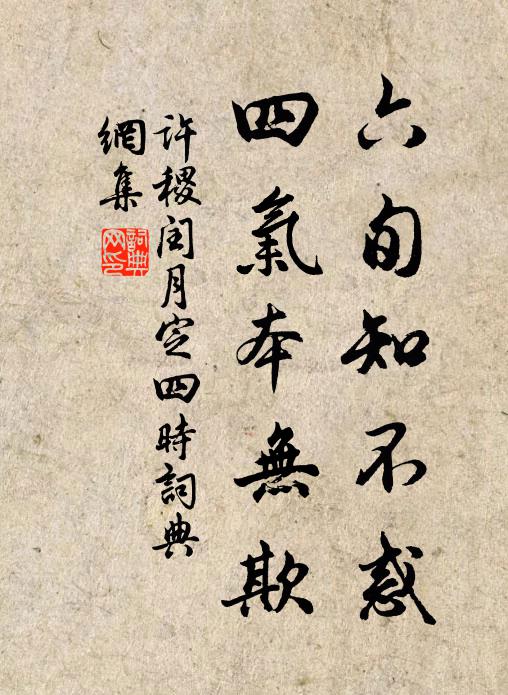 六旬知不惑
四氣本無欺
許稷閏月定四時詞典
網集
詞典網印